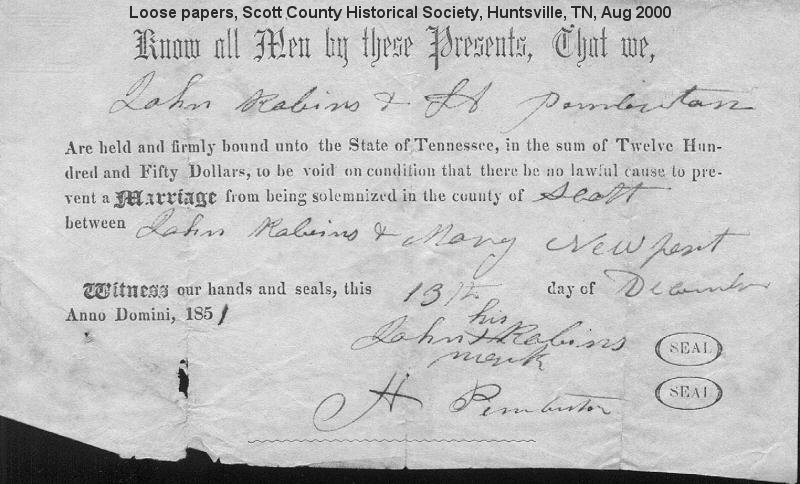 Loose papers, Scott County Historical Society, Huntsville, TN, Aug 2000
Know all Men by these Presents, That we,
John Robins & H Pemberton
Are held and firmly bound unto the State of Tennessee, in the sum of Twelve Hun-
dred and Fifty Dollars, to be void on condition that there be no lawful cause to pre-
vent a Marriage from being solemnized in the county of Scott
between John Robins & Mary Newport
Witness our hands and seals, this 13th day of December
Anno Domini, 1851
his
John X Robins SEAL
mark
H Pemberton SEAL